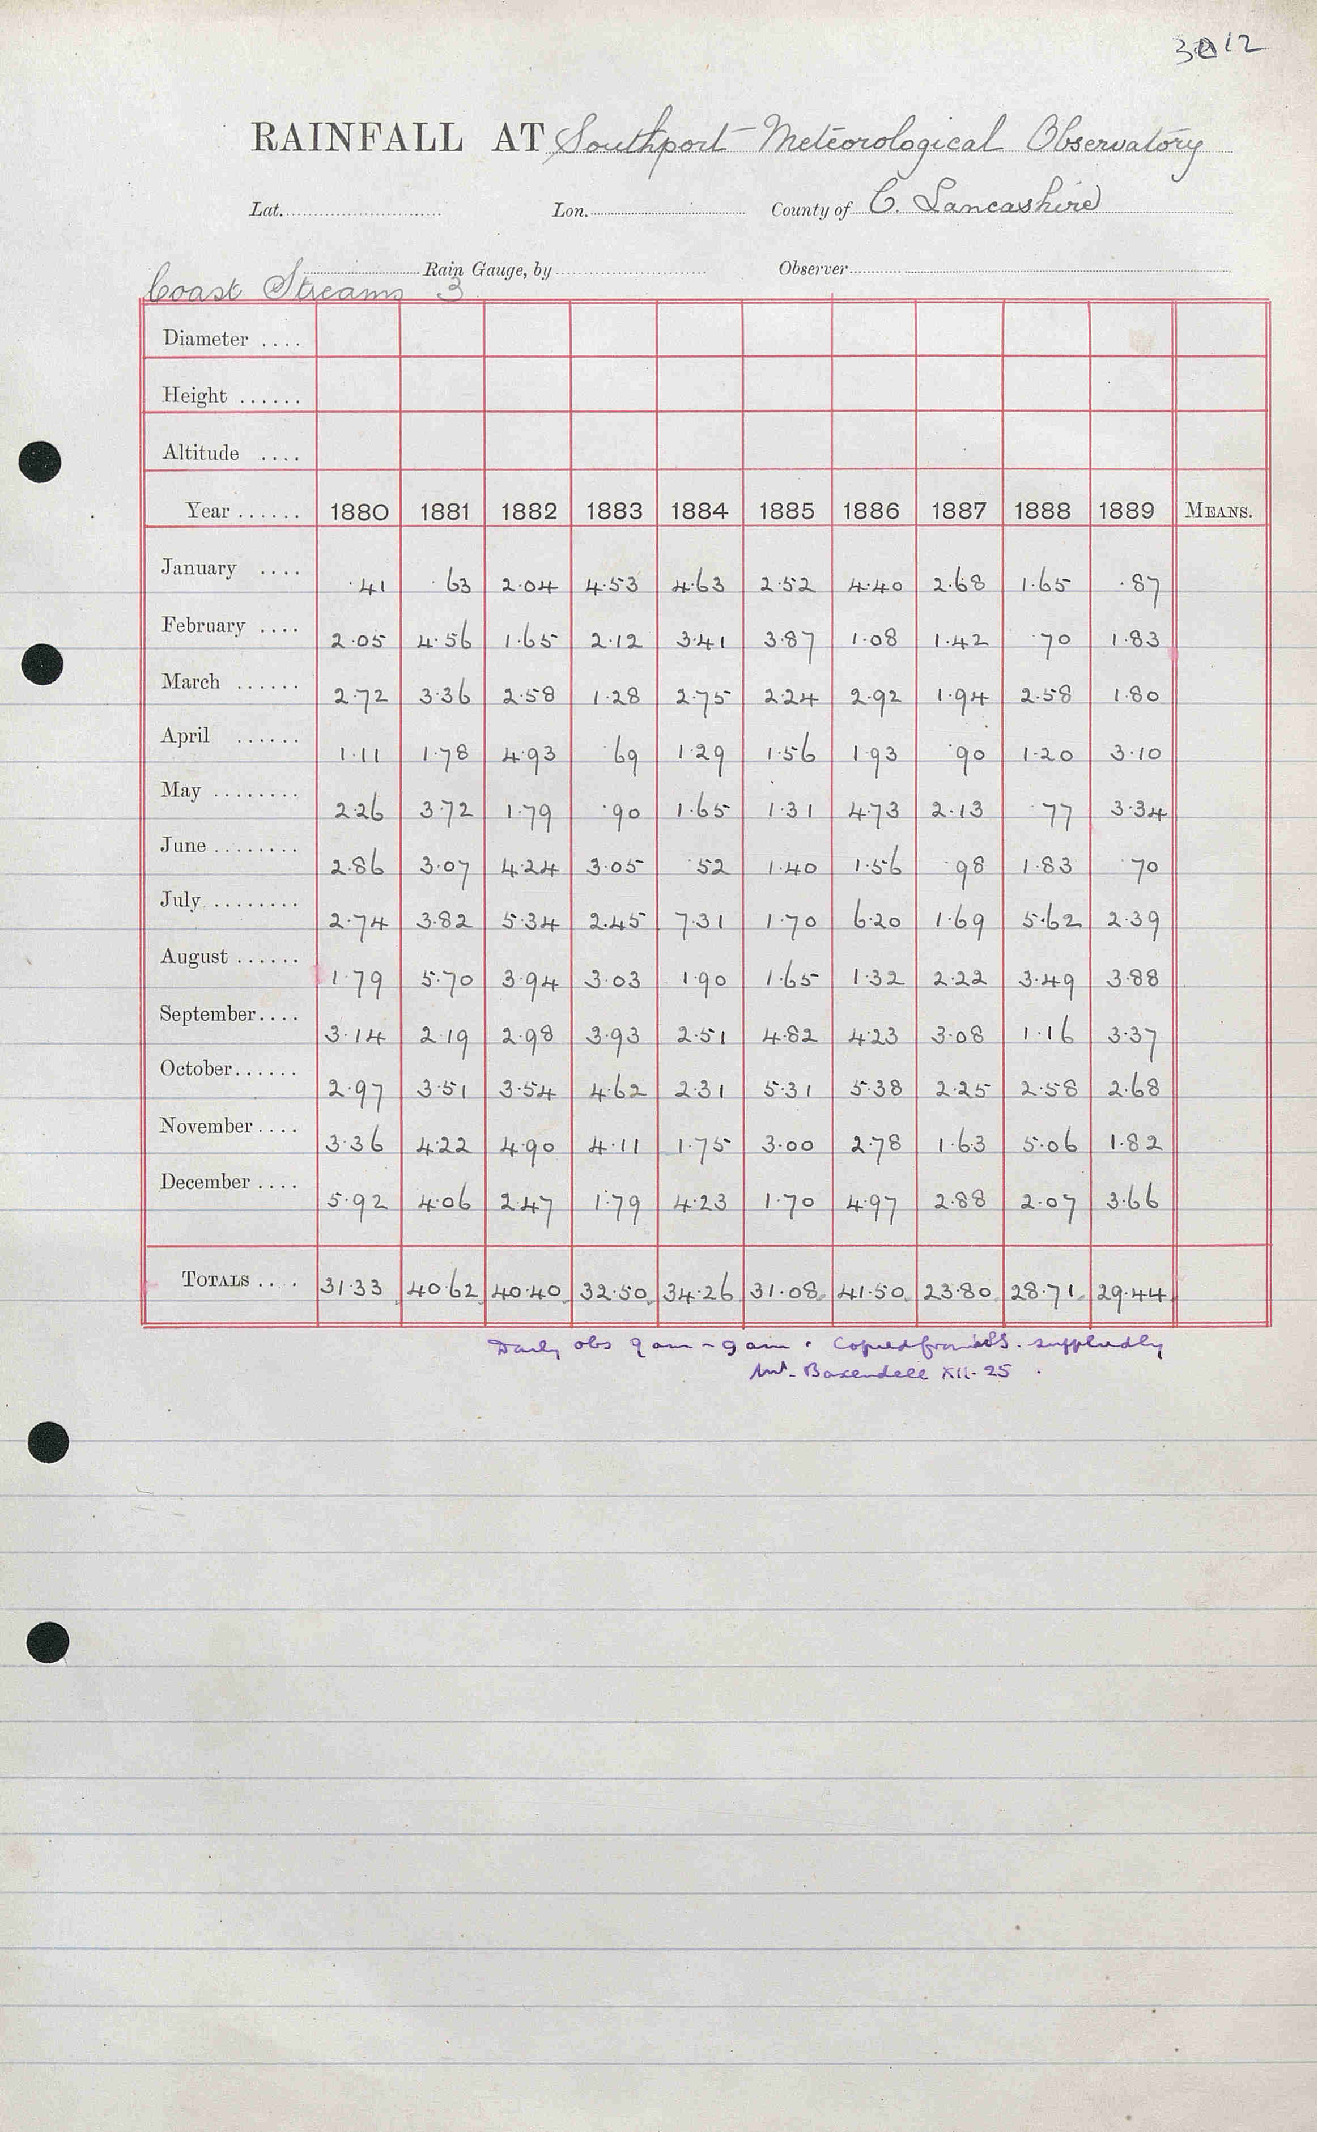 3012
RAINFALL AT Southport Meteorological Observatory
Lat. Lon. County of C. Lancashire
Rain Gauge, by Observer
Coast Streams 3
Diameter ....
Height ......
Altitude ....
Year ...... 1880 1881 1882 1883 1884 1885 1886 1887 1888 1889 MEANS.
January .... ·41 ·63 2·04 4·53 4·63 2·52 4·40 2·68 1·65 ·87
February .... 2·05 4·56 1·65 2·12 3·41 3·87 1·08 1·42 ·70 1·83
March ...... 2·72 3·36 2·58 1·28 2·75 2·24 2·92 1·94 2·58 1·80
April ...... 1·11 1·78 4·93 ·69 1·29 1·56 1·93 ·90 1·20 3·10
May ........ 2·26 3·72 1·79 ·90 1·65 1·31 4·73 2·13 ·77 3·34
June ........ 2·86 3·07 4·24 3·05 ·52 1·40 1·56 ·98 1·83 ·70
July ......... 2·74 3·82 5·34 2·45 7·31 1·70 6·20 1·69 5·62 2·39
August ...... 1·79 5·70 3·94 3·03 1·90 1·65 1·32 2·22 3·49 3·88
September.... 3·14 2·19 2·98 3·93 2·51 4·82 4·23 3·08 1·16 3·37
October...... 2·97 3·51 3·54 4·62 2·31 5·31 5·38 2·25 2·58 2·68
November.... 3·36 4·22 4·90 4·11 1·75 3·00 2·78 1·63 5·06 1·82
December .... 5·92 4·06 2·47 1·79 4·23 1·70 4·97 2·88 2·07 3·66
TOTALS .... 31·33 40·62 40·40 32·50 34·26 31·08 41·50 23·80 28·71 29·44
Daily obs 9 am - 9 am. Copied from MS. supplied by
Baxendell XII-25.